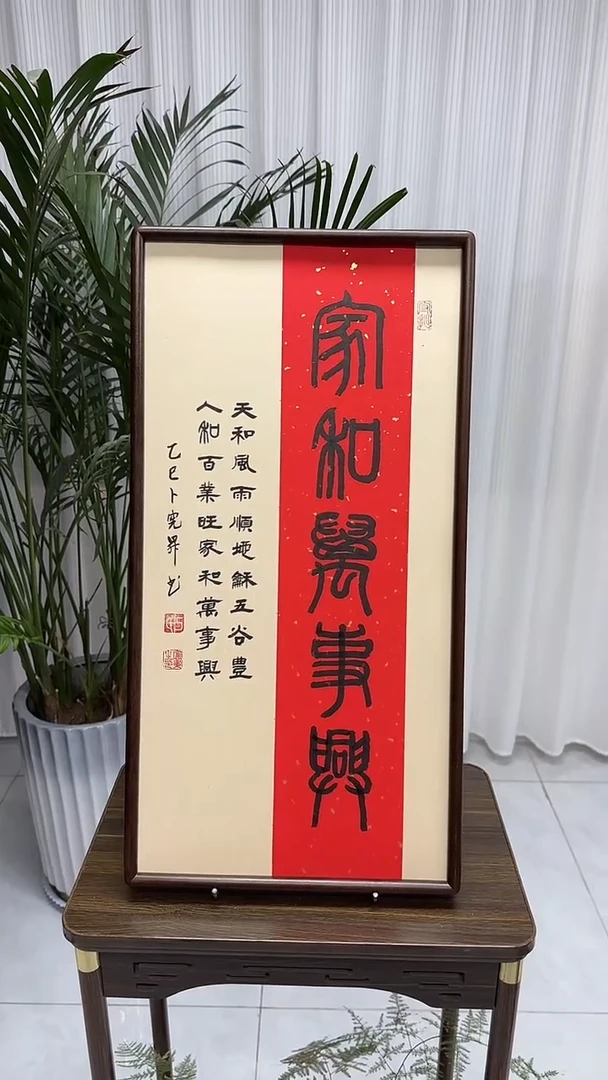 家和萬事興
天和風雨順地龢五谷豊
人和百業旺家和萬事興
乙巳卜完昇书